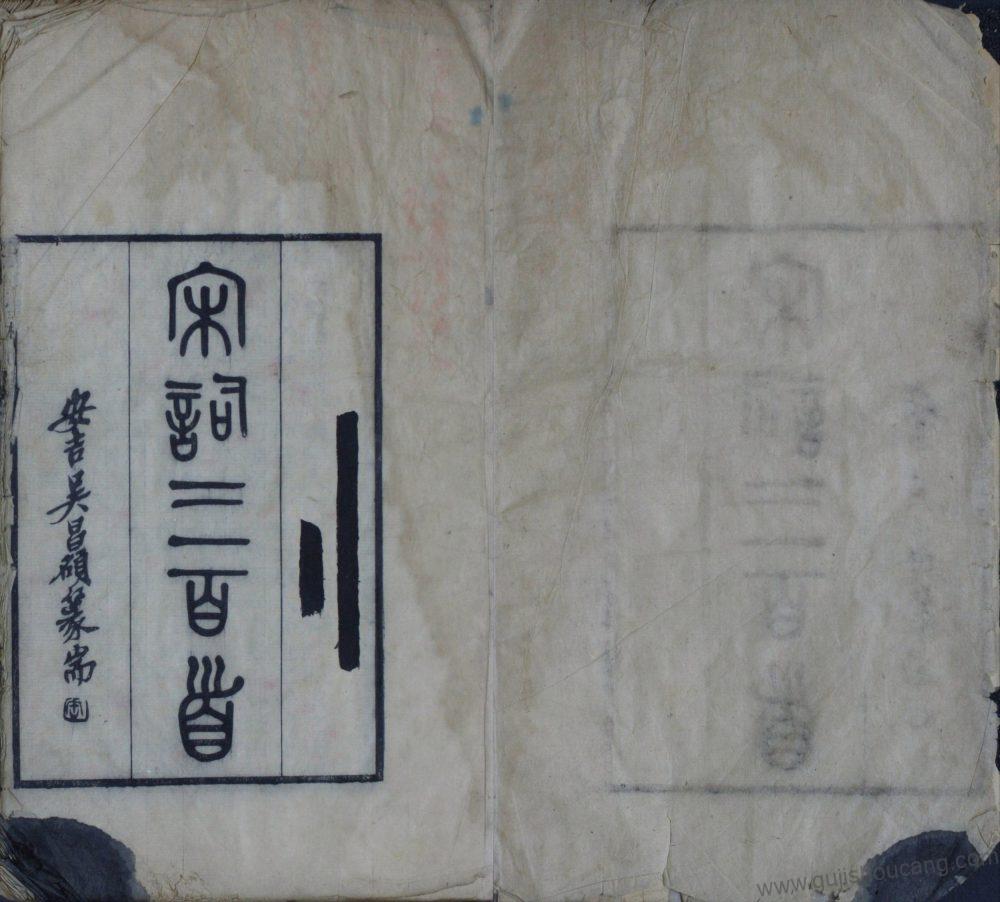 宋詞三百首
安吉吳昌碩篆耑
www.gujishoucang.com